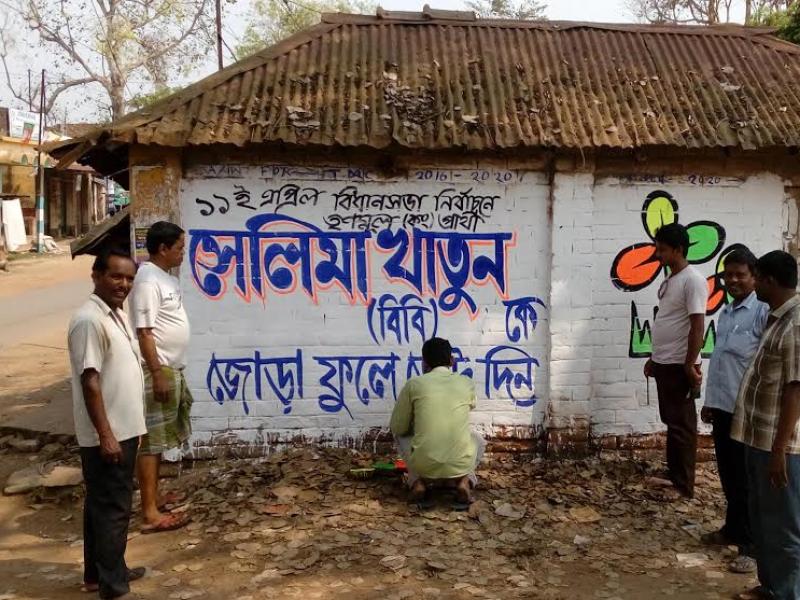 2016-2020
১১ই এপ্রিল বিধানসভা নির্বাচনে
তৃণমূল (কং) প্রার্থী
সেলিমা খাতুন
(বিবি) কে
জোড়া ফুলে দিন